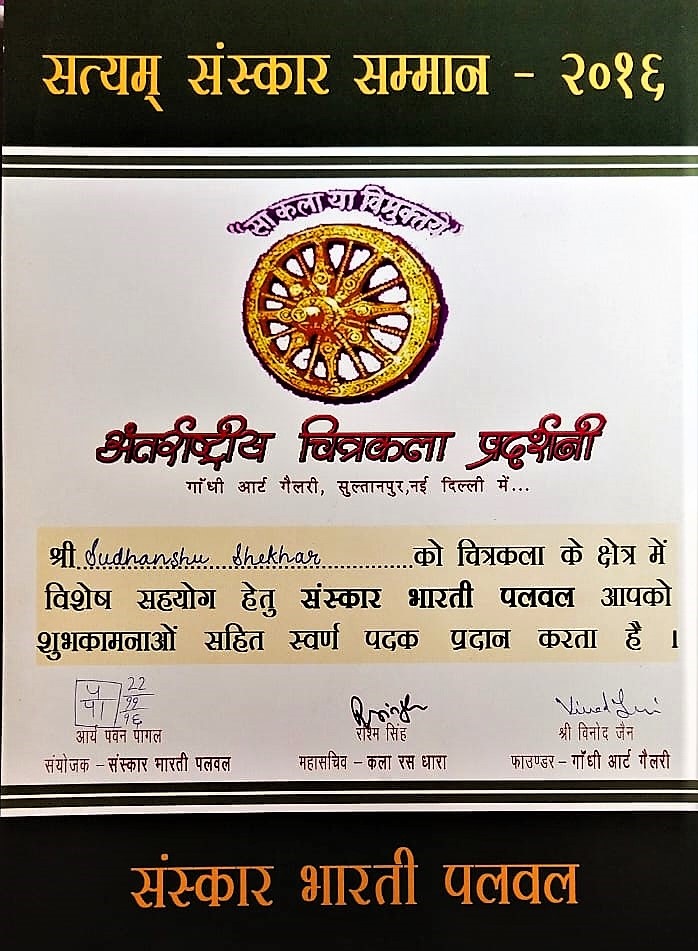 सत्यम् संस्कार सम्मान - २०१६
"सा कला या विमुक्तये"
अंतर्राष्ट्रीय चित्रकला प्रदर्शनी
गाँधी आर्ट गैलरी, सुल्तानपुर,नई दिल्ली में...
श्री Sudhanshu Shekhar को चित्रकला के क्षेत्र में
विशेष सहयोग हेतु संस्कार भारती पलवल आपको
शुभकामनाओं सहित स्वर्ण पदक प्रदान करता है ।
आर्य पवन पागल रश्मि सिंह श्री विनोद जैन
संयोजक - संस्कार भारती पलवल महासचिव - कला रस धारा फाउण्डर - गाँधी आर्ट गैलरी
संस्कार भारती पलवल